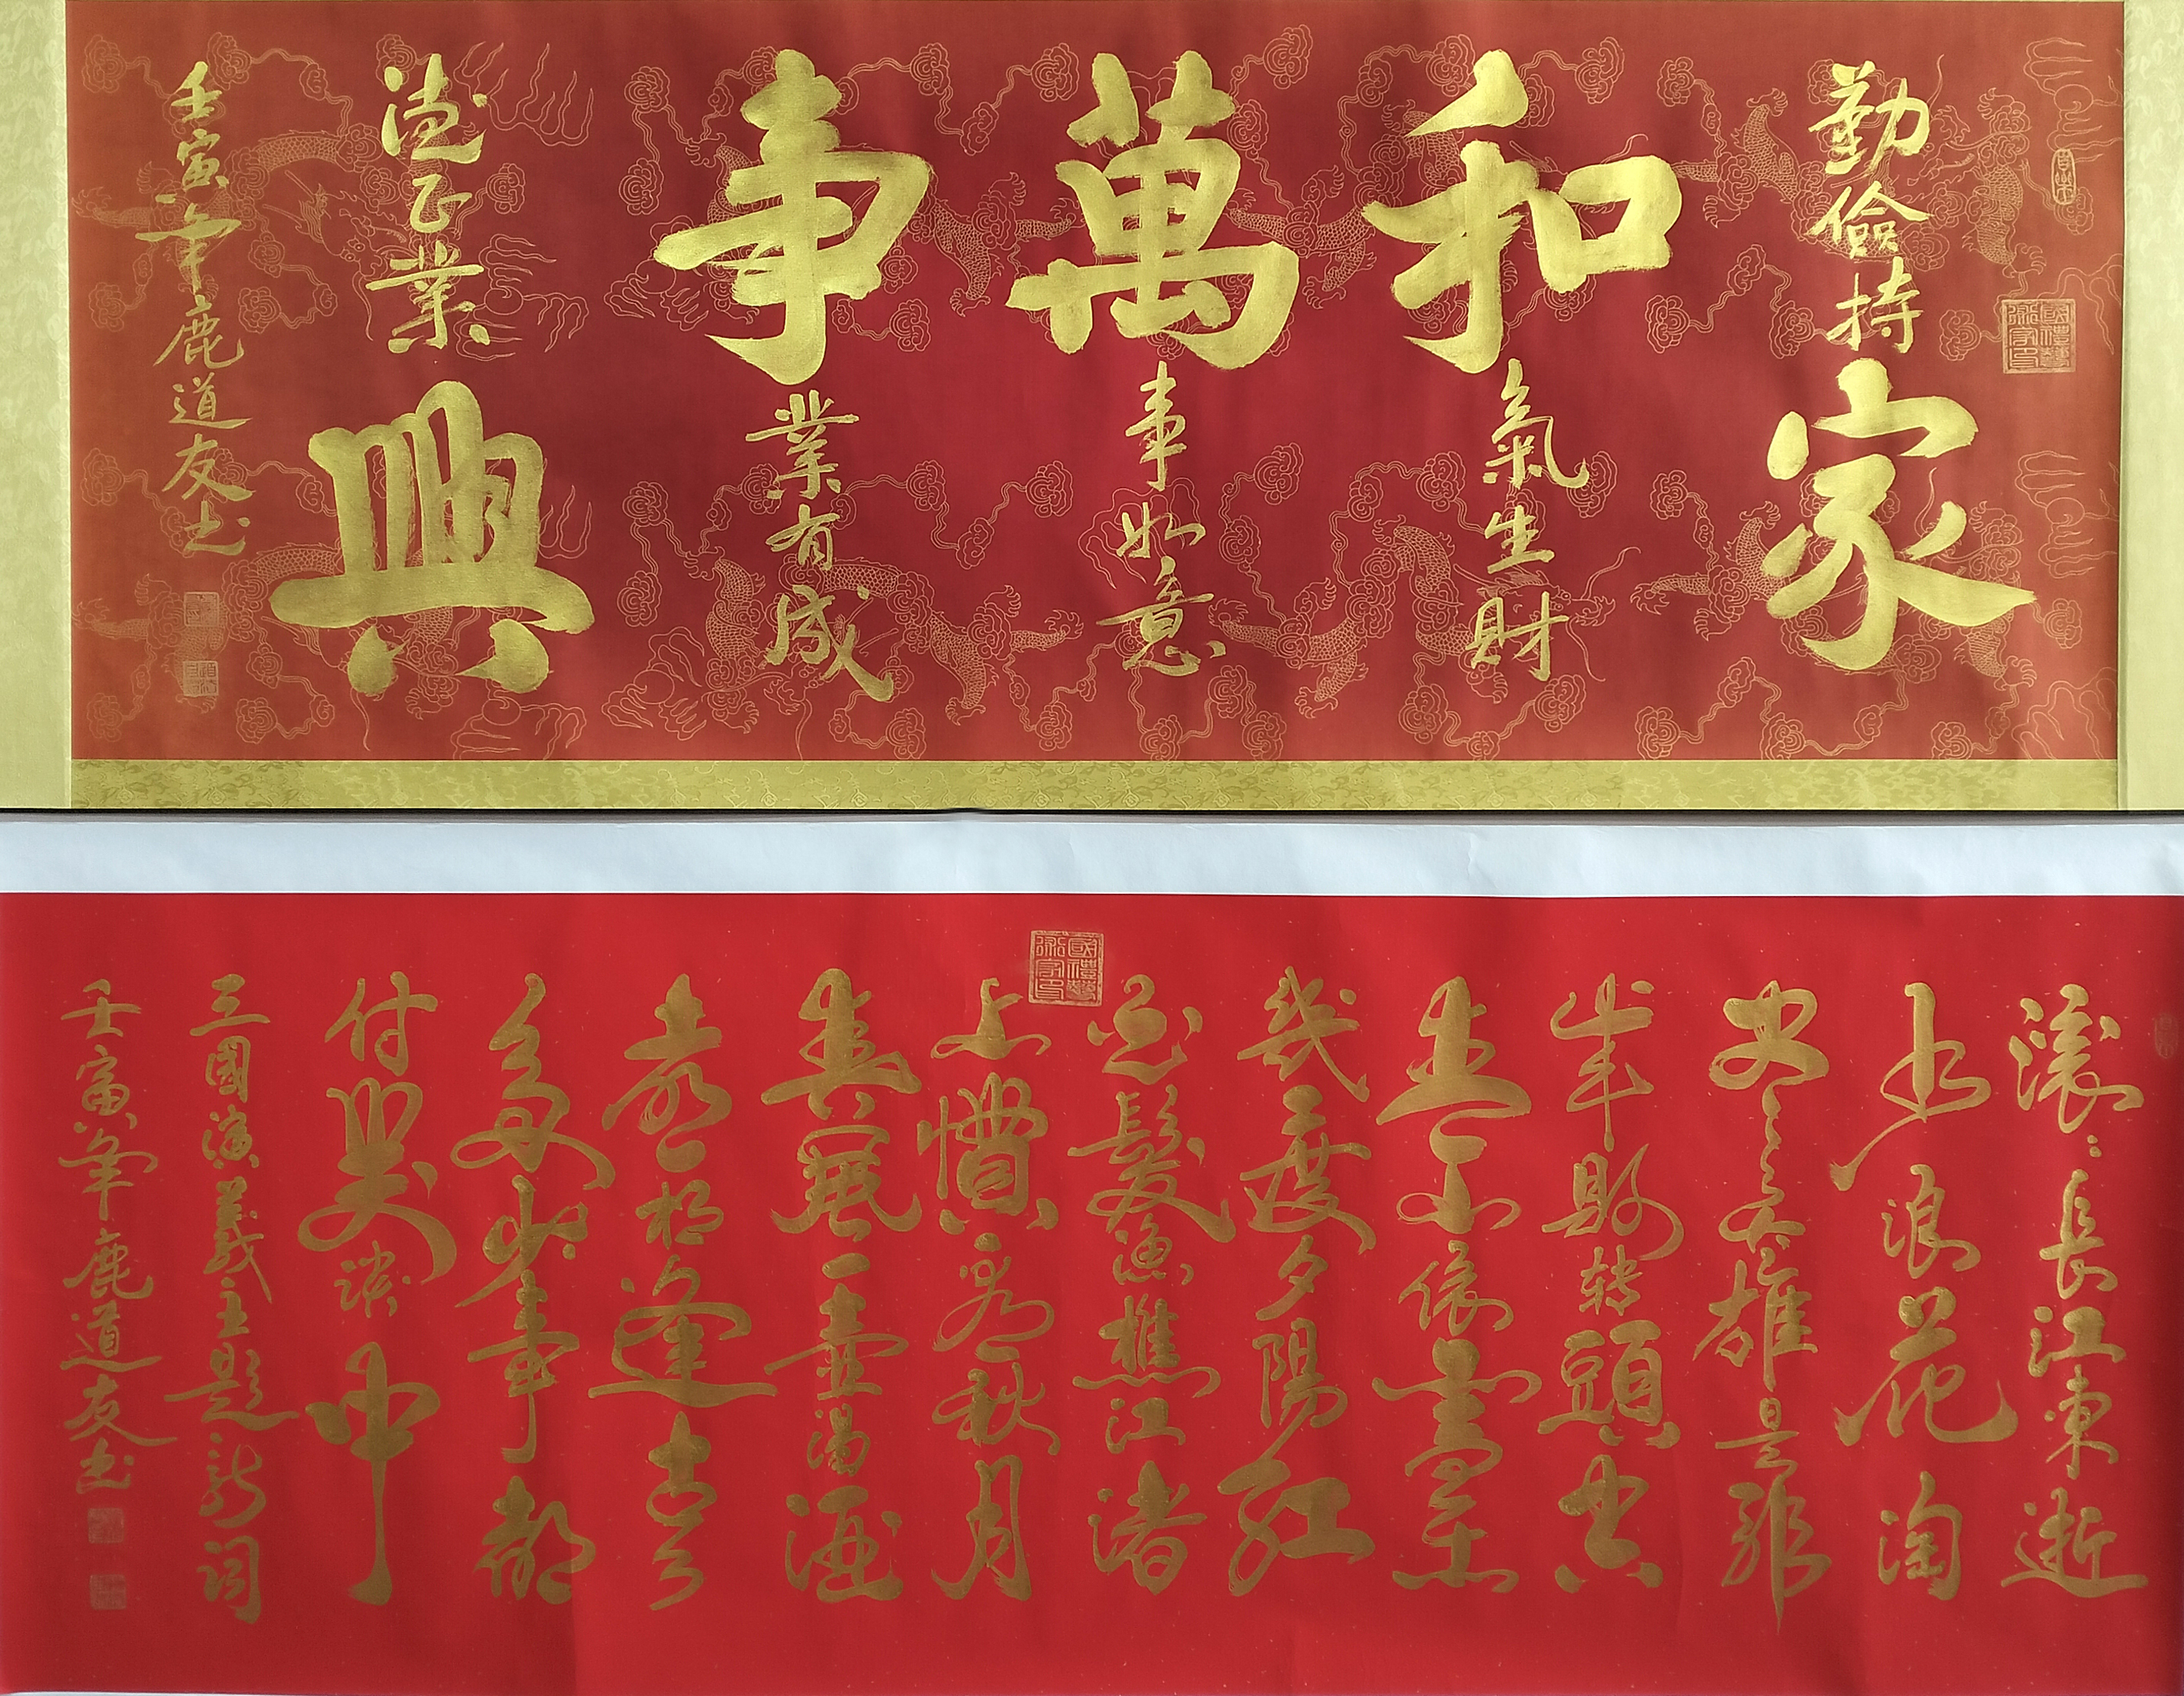 勤儉持家
和氣生財
萬事如意
事業有成
德正業興
壬寅年鹿道友书
國禮藝術家印
滾〻長江東逝
水浪花淘
尽英雄是非
成敗转頭空
青山依舊在
幾度夕陽紅
白髮漁樵江渚
上慣看秋月
春風一壺濁酒
喜相逢古今
多少事都
付笑談中
三國演義主題歌詞
壬寅年鹿道友书
國禮藝術家印